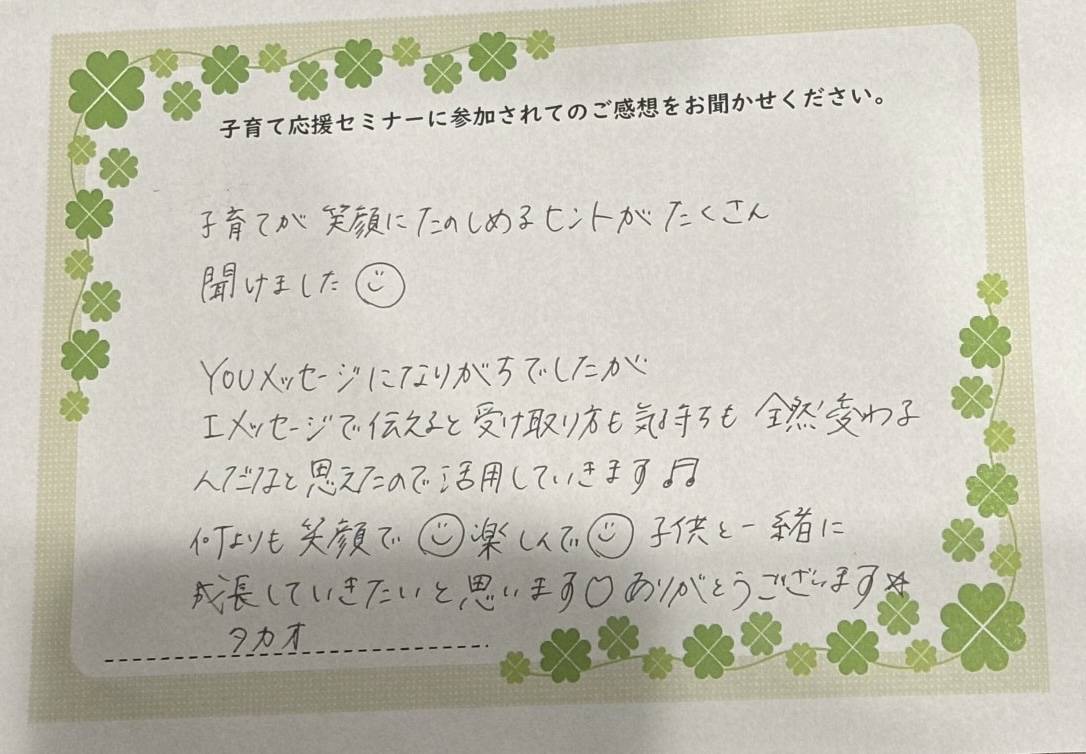 子育て応援セミナーに参加されてのご感想をお聞かせください。
子育てが笑顔にたのしめるヒントがたくさん
聞けました☺
YOUメッセージになりがちでしたが
Iメッセージで伝えると受け取り方も気持ちも全然変わる
んだなと思えたので活用していきます♫
何よりも笑顔で☺楽しんで☺子供と一緒に
成長していきたいと思います♡ありがとうございます☆
タカオ